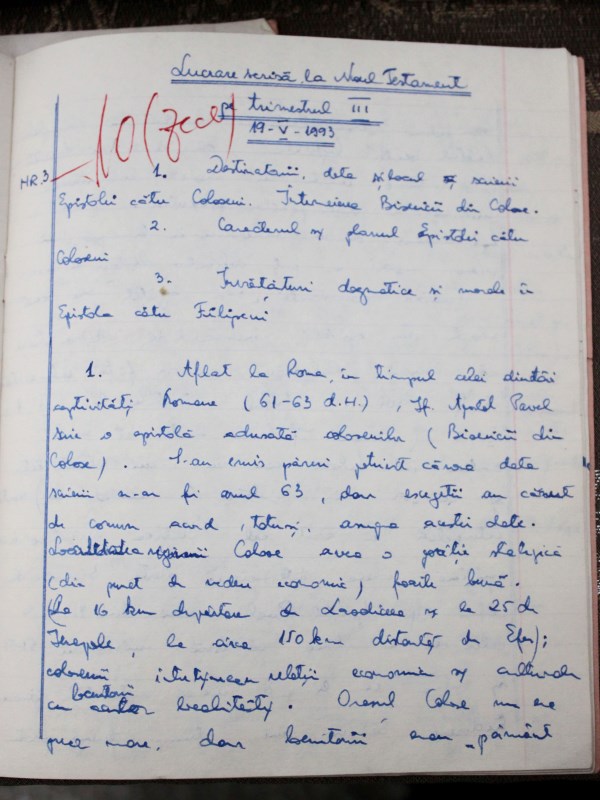 Lucrare scrisă la Noul Testament
pe trimestrul III
19-V-1993
10 (zece)
NR. 3
1. Destinatarii, data și locul scrierii
Epistolei către Coloseni. Întemeierea Bisericii din Colose.
2. Caracterul și planul Epistolei către
Coloseni
3. Învățături dogmatice și morale în
Epistola către Filipeni
1. Aflat la Roma, în timpul celei dintâi
captivități Romane (61-63 d.H.), Sf. Apostol Pavel
scrie o epistolă adresată colosenilor (Bisericii din
Colose). S-au emis păreri potrivit cărora data
scrierii ei ar fi anul 63, dar exegeții au căzut
de comun acord, totuși, asupra acestei date.
Localitatea Colose avea o poziție strategică
(din punct de vedere economic) foarte bună.
(La 16 km depărtare de Laodiceea și la 25 de
Ierapole, la circa 150 km distanță de Efes);
colosenii întrețineau relații economice și culturale
cu locuitorii localități. Orașul Colose nu era
prea mare, dar locuitorii erau pământ